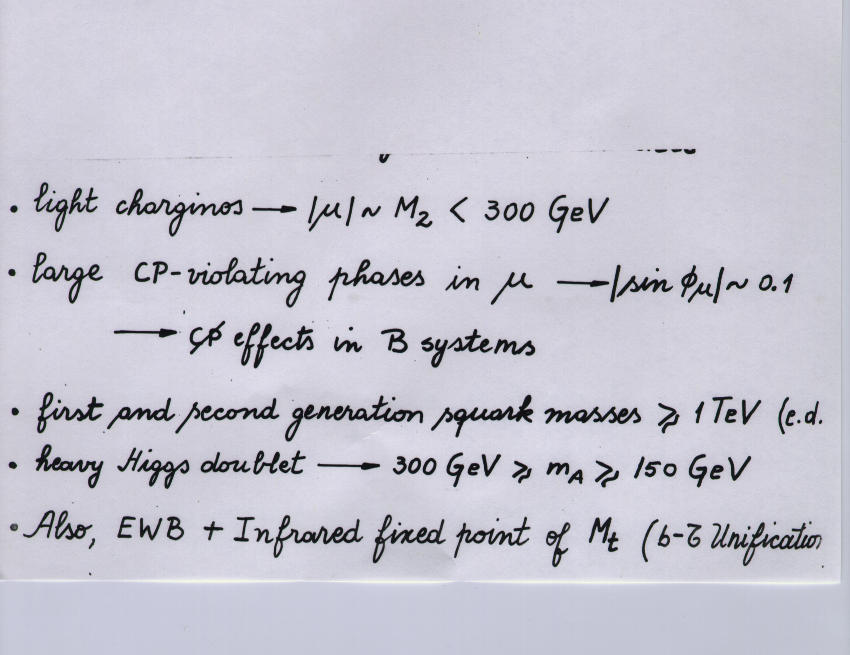 • light charginos → |μ| ~ M₂ < 300 GeV
• large CP-violating phases in μ → |sin ϕμ| ~ 0.1
→ C̸P̸ effects in B systems
• first and second generation squark masses ⩾ 1 TeV (e.d.
• heavy Higgs doublet → 300 GeV ⩾ m_A ⩾ 150 GeV
• Also, EWB + Infrared fixed point of M_t (b-τ Unification